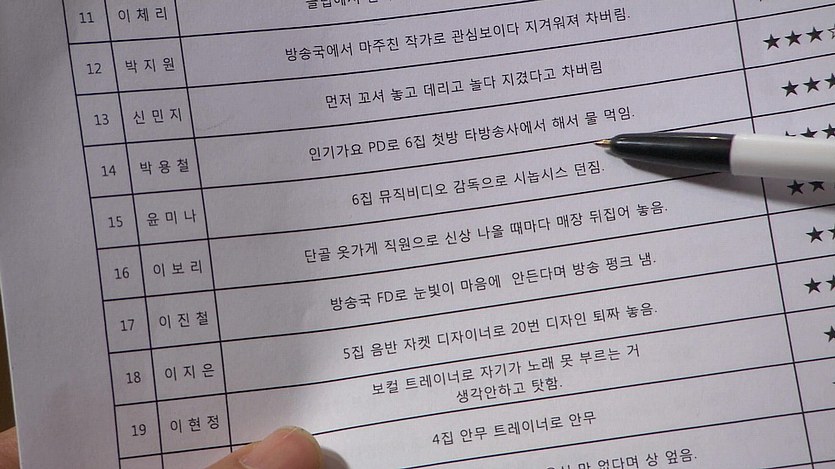 11 이체리
12 박지원 방송국에서 마주친 작가로 관심보이다 지겨워져 차버림.
13 신민지 먼저 꼬셔 놓고 데리고 놀다 지겼다고 차버림
14 박용철 인기가요 PD로 6집 첫방 타방송사에서 해서 물 먹임.
15 윤미나 6집 뮤직비디오 감독으로 시놉시스 던짐.
16 이보리 단골 옷가게 직원으로 신상 나올 때마다 매장 뒤집어 놓음.
17 이진철 방송국 FD로 눈빛이 마음에 안든다며 방송 펑크 냄.
18 이지은 5집 음반 자켓 디자이너로 20번 디자인 퇴짜 놓음.
19 이현정 보컬 트레이너로 자기가 노래 못 부르는 거
생각안하고 탓함.
4집 안무 트레이너로 안무
맛 없다며 상 엎음.